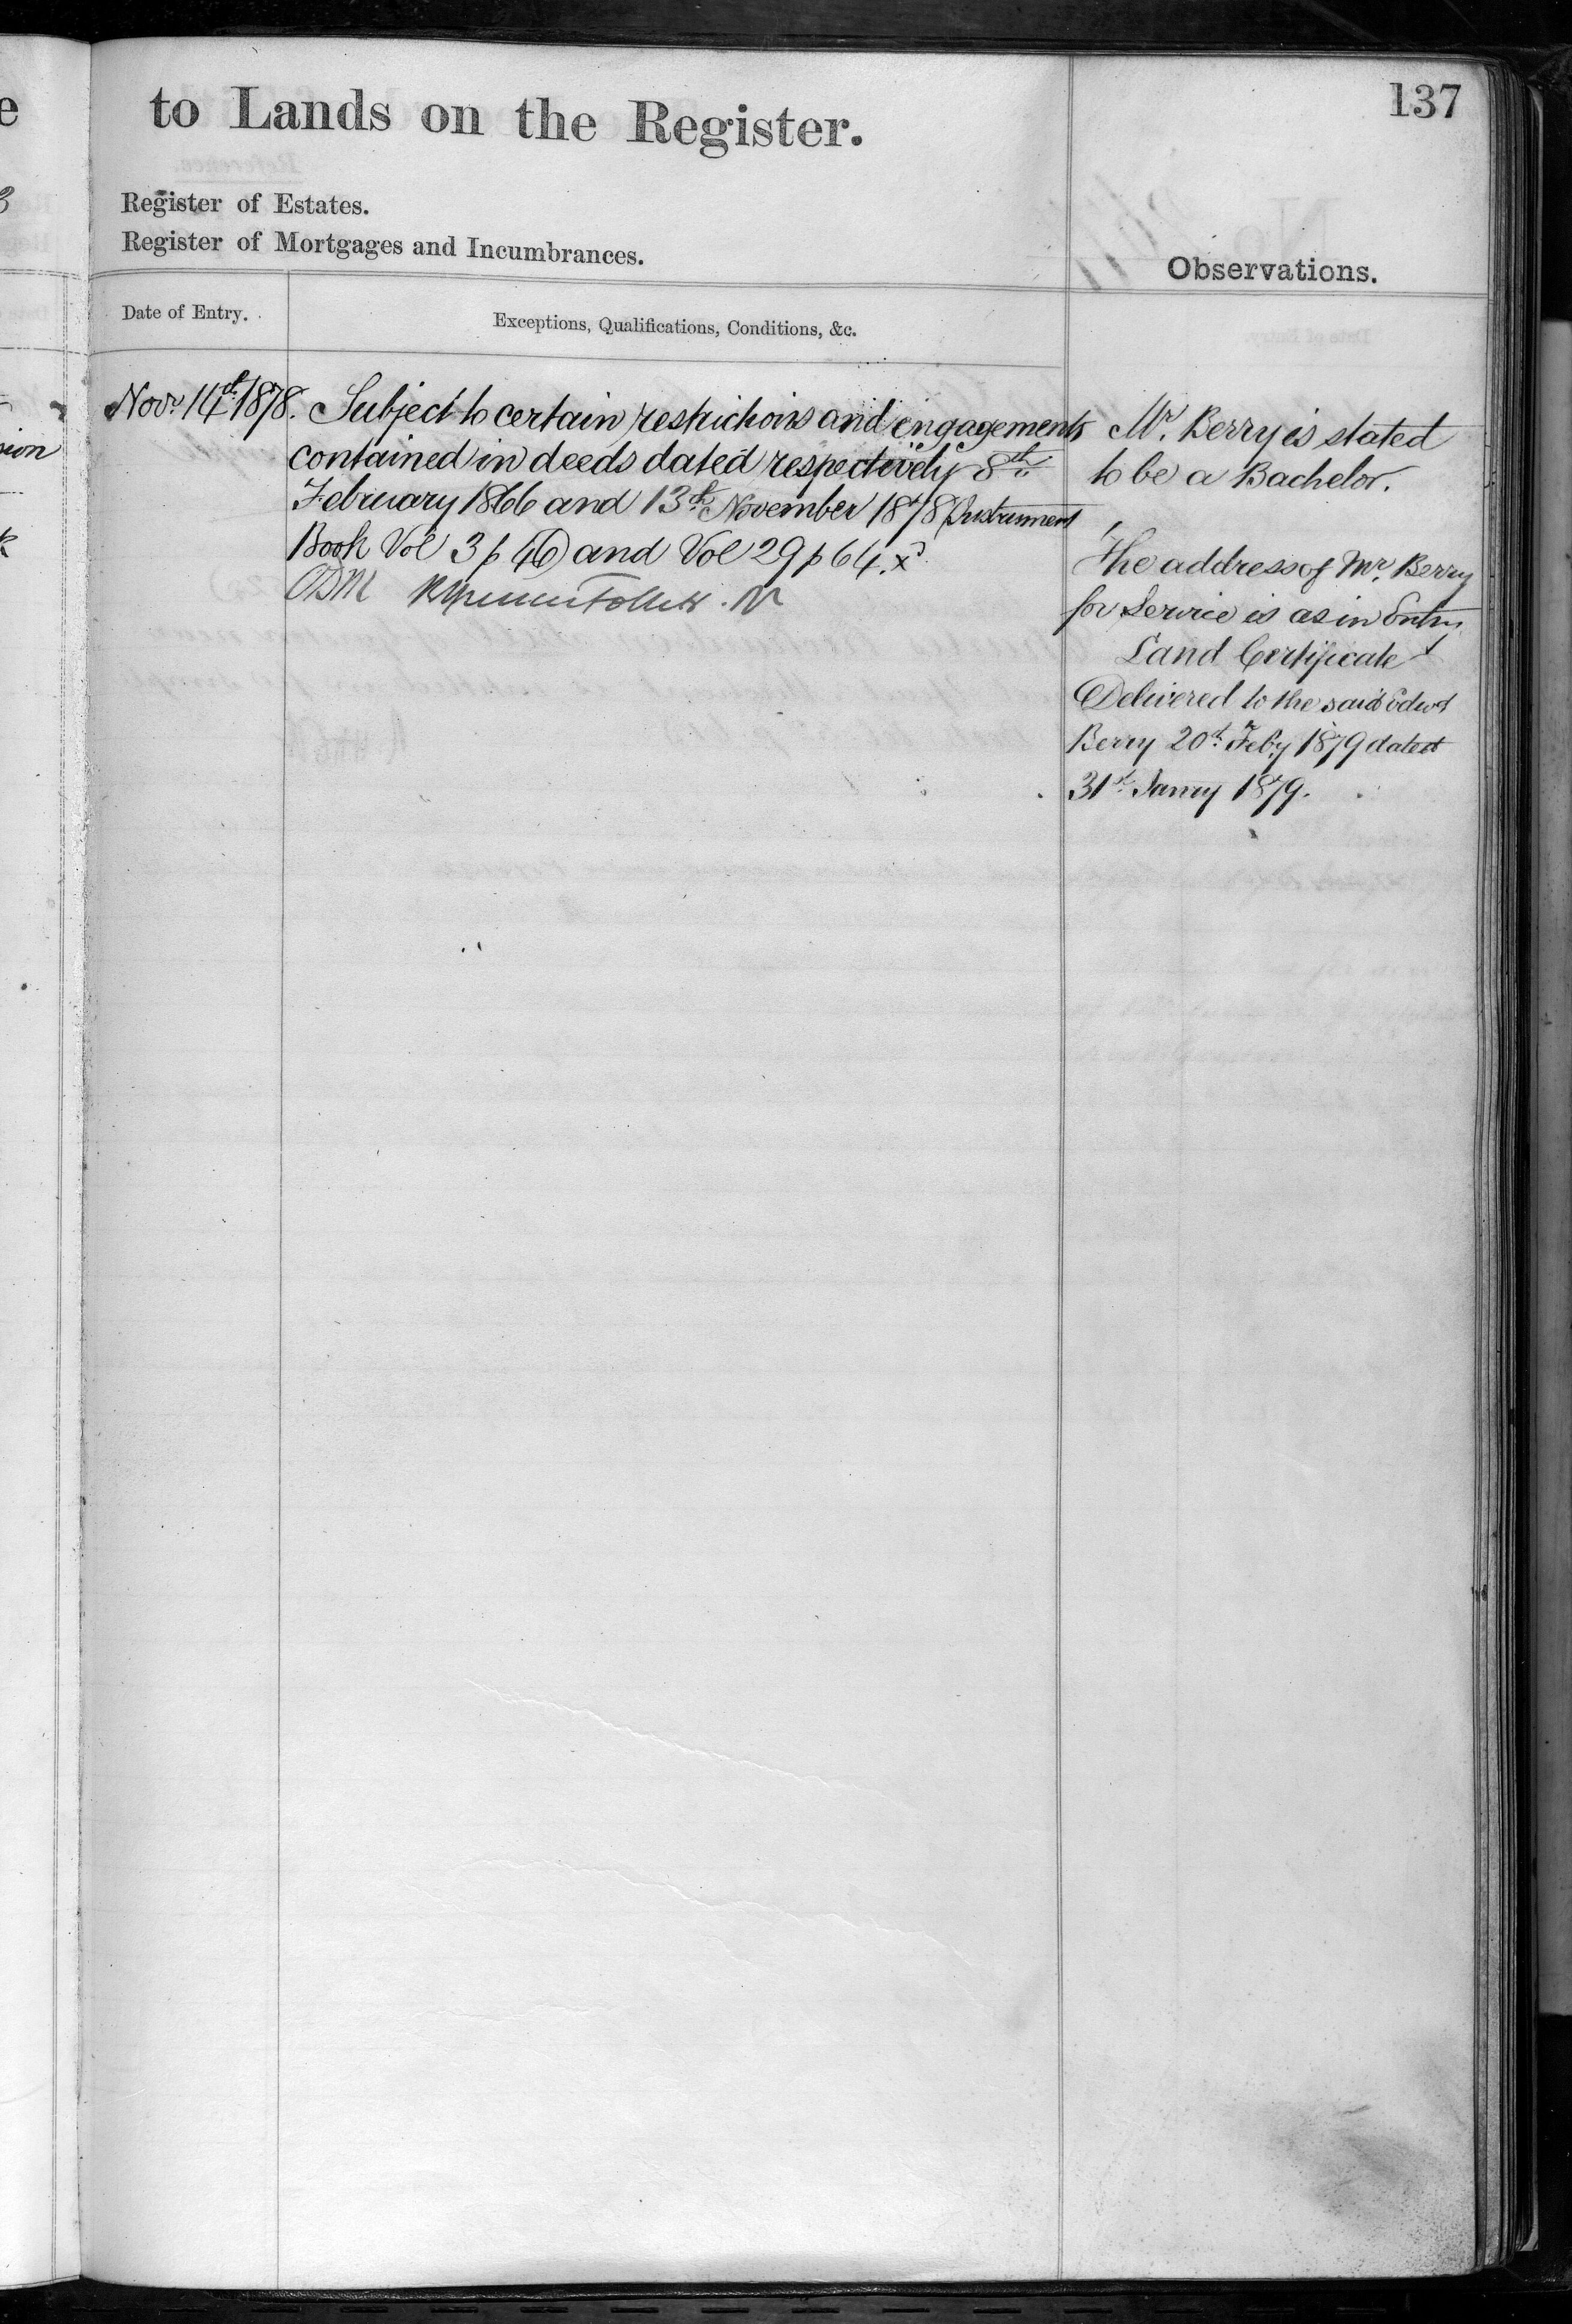 137
to Lands on the Register.
Register of Estates.
Register of Mortgages and Incumbrances.
Observations.
Date of Entry.
Exceptions, Qualifications, Conditions, &c.
Novr. 14th 1878. Subject to certain restrictions and engagements
contained in deeds dated respectively 8th
February 1866 and 13th November 1878 (Instrument
Book Vol 3 p 46) and Vol 29 p 64.
Mr. Berry is stated
to be a Bachelor.
The address of Mr. Berry
for Service is as in Entry
Land Certificate
Delivered to the said Edwd
Berry 20th Feby 1879 dated
31st Janry 1879.